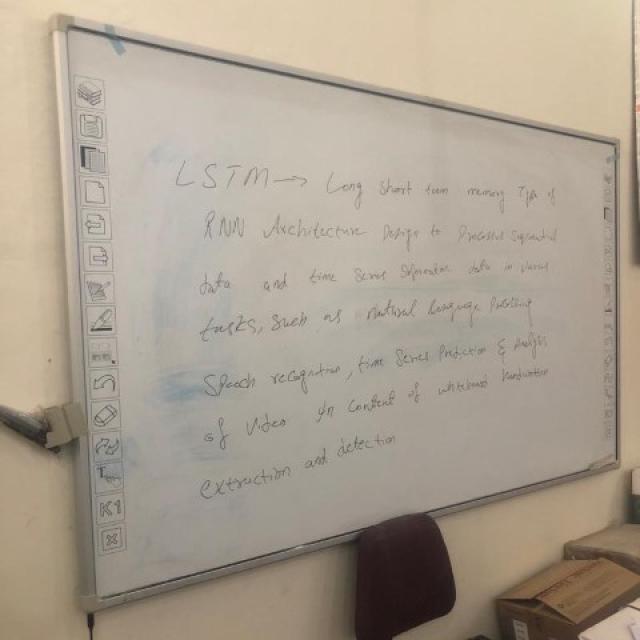 LSTM → Long Short term memory Type of
RNN Architecture Design to Processed Sequential
data and time Series data in
tasks, such as natural language
Speech recognition, time Series Prediction & Analysis
of Video in context of whiteboard
extraction and detection